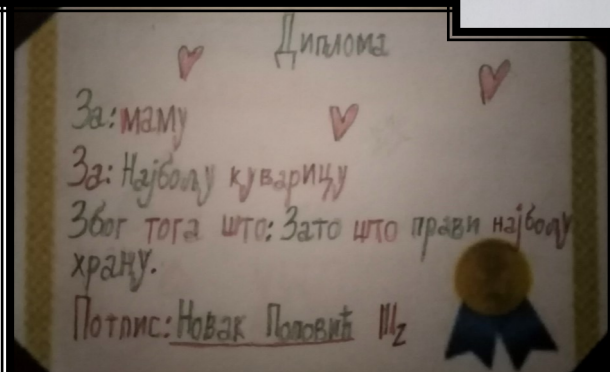 Диплома
За: маму
За: Најбољу куварицу
Због тога што: Зато што прави најбољу
храну.
Потпис: Новак Поповић III2